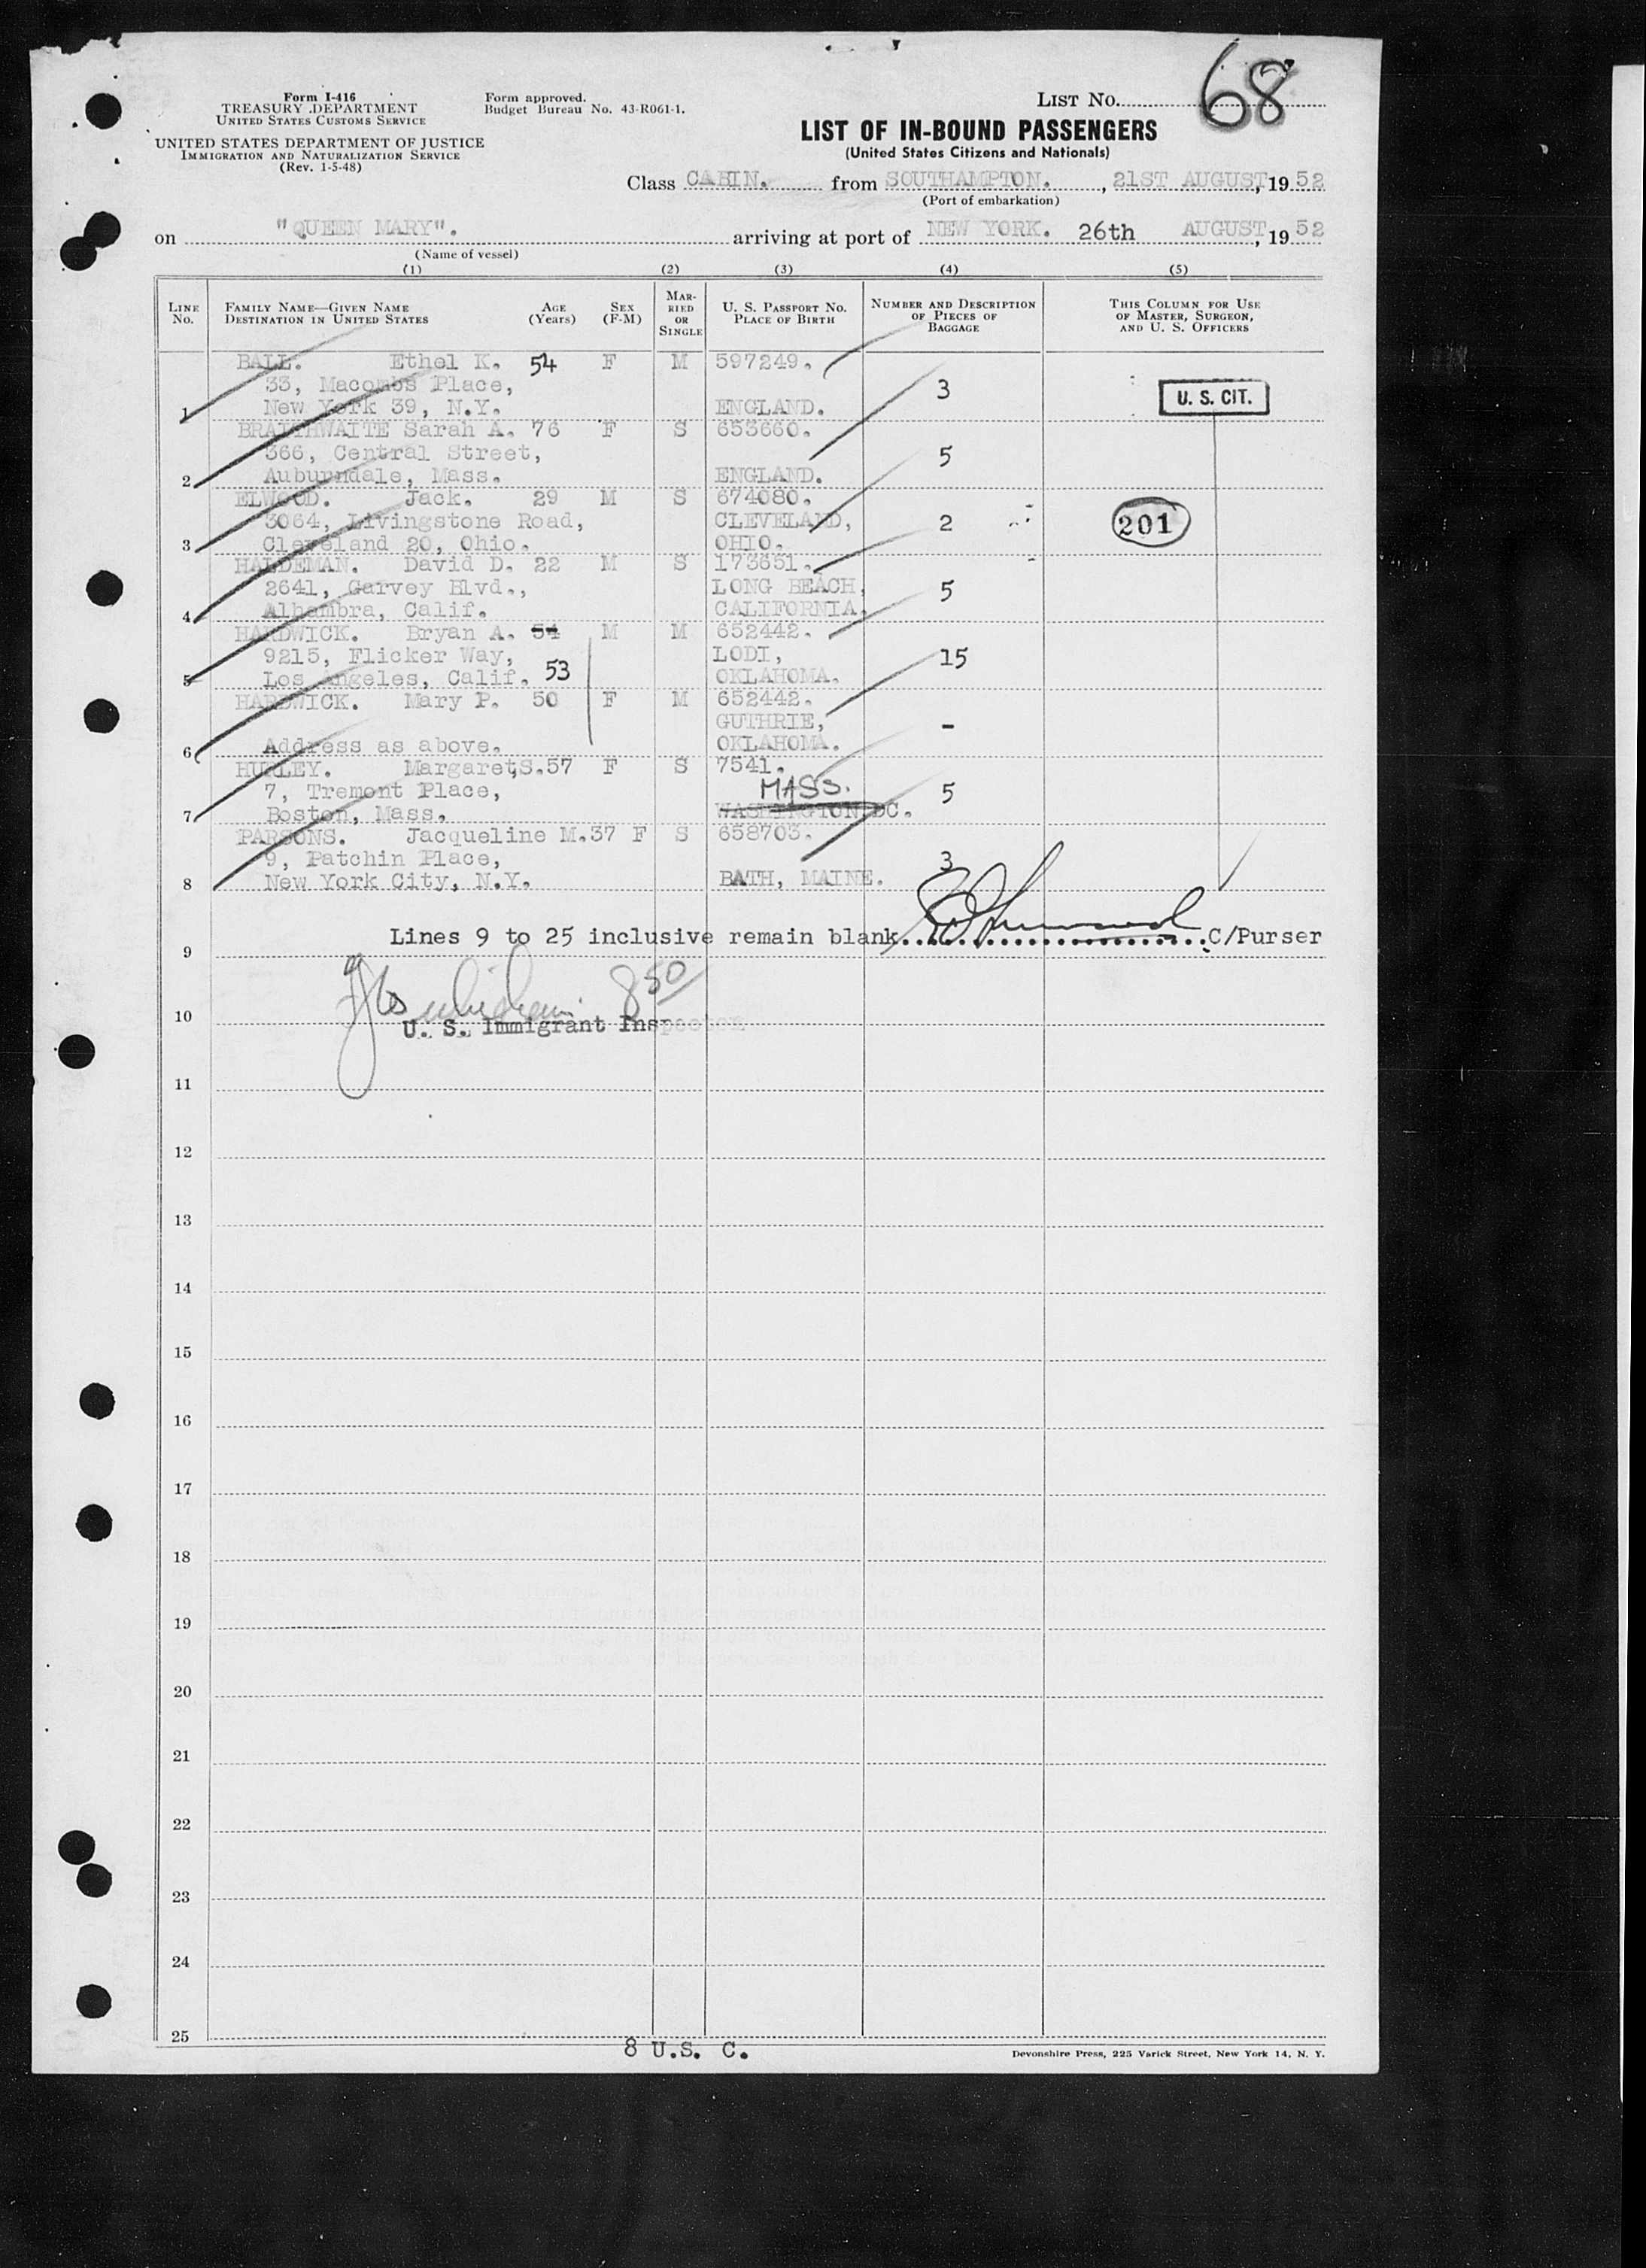 Form I-416
TREASURY DEPARTMENT
UNITED STATES CUSTOMS SERVICE
UNITED STATES DEPARTMENT OF JUSTICE
IMMIGRATION AND NATURALIZATION SERVICE
(Rev. 1-5-48)
Form approved.
Budget Bureau No. 43-R061-1.
LIST No. 68
LIST OF IN-BOUND PASSENGERS
(United States Citizens and Nationals)
Class CABIN. from SOUTHAMPTON. , 21ST AUGUST, 1952
(Port of embarkation)
on "QUEEN MARY". arriving at port of NEW YORK. 26th AUGUST, 1952
(Name of vessel)
(1) (2) (3) (4) (5)
LINE No. FAMILY NAME—GIVEN NAME DESTINATION IN UNITED STATES AGE (Years) SEX (F-M) MARRIED OR SINGLE U. S. PASSPORT No. PLACE OF BIRTH NUMBER AND DESCRIPTION OF PIECES OF BAGGAGE THIS COLUMN FOR USE OF MASTER, SURGEON, AND U. S. OFFICERS
BALL. Ethel K. 54 F M 597249.
33, Macombs Place, 3 U. S. CIT.
1 New York 39, N.Y. ENGLAND.
BRAITHWAITE Sarah A. 76 F S 653660.
366, Central Street, 5
2 Auburndale, Mass. ENGLAND.
ELWOOD. Jack. 29 M S 674080.
3064, Livingstone Road, CLEVELAND, 2 201
3 Cleveland 20, Ohio. OHIO.
HALDEMAN. David D. 22 M S 173651.
2641, Garvey Blvd., LONG BEACH, 5
4 Alhambra, Calif. CALIFORNIA.
HARDWICK. Bryan A. 54 M M 652442.
9215, Flicker Way, LODI, 15
5 Los Angeles, Calif. 53 OKLAHOMA.
HARDWICK. Mary P. 50 F M 652442.
GUTHRIE, -
6 Address as above. OKLAHOMA.
HURLEY. Margaret,S. 57 F S 7541.
7, Tremont Place, MASS. 5
7 Boston, Mass. WASHINGTON DC.
PARSONS. Jacqueline M. 37 F S 658703.
9, Patchin Place, 3
8 New York City, N.Y. BATH, MAINE.
Lines 9 to 25 inclusive remain blank. C/Purser
9
8 50
10 U. S. Immigrant Inspector
11
12
13
14
15
16
17
18
19
20
21
22
23
24
25
8 U.S. C.
Devonshire Press, 225 Varick Street, New York 14, N. Y.